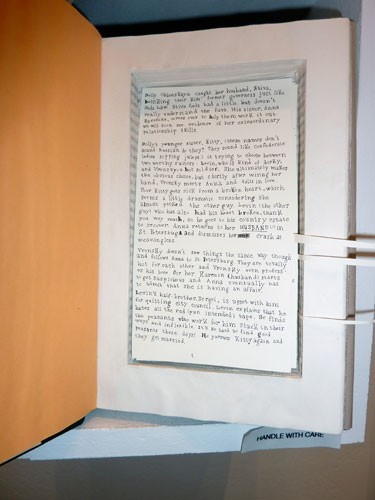 Dolly Oblonskaya caught her husband, Stiva,
their former governess just like
had a little but doesn't
really understand the fuss. His sister, Anna
Karenina, comes over to help them work it out
we will soon see evidence of her extraordinary
relationship skills
Dolly's younger sister, Kitty, (these names don't
sound Russian do they? They sound like
is trying to chose between
two worthy suitors: Levin, who's kind of dorky,
and Vronsky, a bit wilder. She ultimately makes
the obvious choice, but shortly after wiring her
hand, Vronsky meets Anna and falls in love
Poor Kitty gets sick from a broken heart, which
seems a little dramatic considering she
almost picked the other guy. Levin (the other
guy) who has also had his heart broken, thank
you very much, so he goes to his country estate
to recover Anna returns to her HUSBAND in
St Petersburg and dismisses her crush as
meaningless
Vronsky doesn't see things the same way though
and follows Anna to St Petersburg They are totally
hot for each other and Vronsky even professes
his love for her Karenin (husband) starts
to get suspicious and Anna eventually has
to admit that she is having an affair.
Levin's half-brother, Sergei, is upset with him
for quitting city council. Levin explains that he
hates all the red (pun intended) tape. He finds
the peasants who work for him stuck in their
ways and inflexible. It's so hard to find good
peasants these days! He pursues Kitty again and
they get married
1
HANDLE WITH CARE